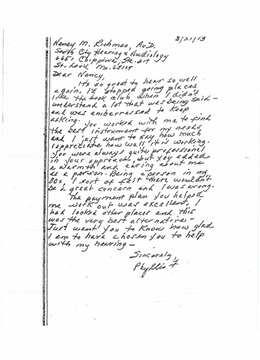 Nancy M. Richman, Au.D. 3/21/13
South City Hearing & Audiology
6651 Chippewa, Ste.
St. Louis, Mo. 63109
Dear Nancy,
It's so great to hear so well
again. I'd stopped going places
like the book club when I didn't
understand a lot that was being said -
and was embarrassed to keep
asking.
You worked with me to find
the best instrument for my needs
and I just want to say how much
I appreciate how well it is working.
You were always quite professional
in your approach, but you added
a warmth and caring about me
as a person. Being a person in my
80s, I sort of felt there wouldn't
be great concern and I was wrong.
The payment plan you helped
me work out was excellent. I
had looked other places and this
was the very best alternative -
Just want you to know how glad
I am to have chosen you to help
with my hearing -
Sincerely,
Phyllis F